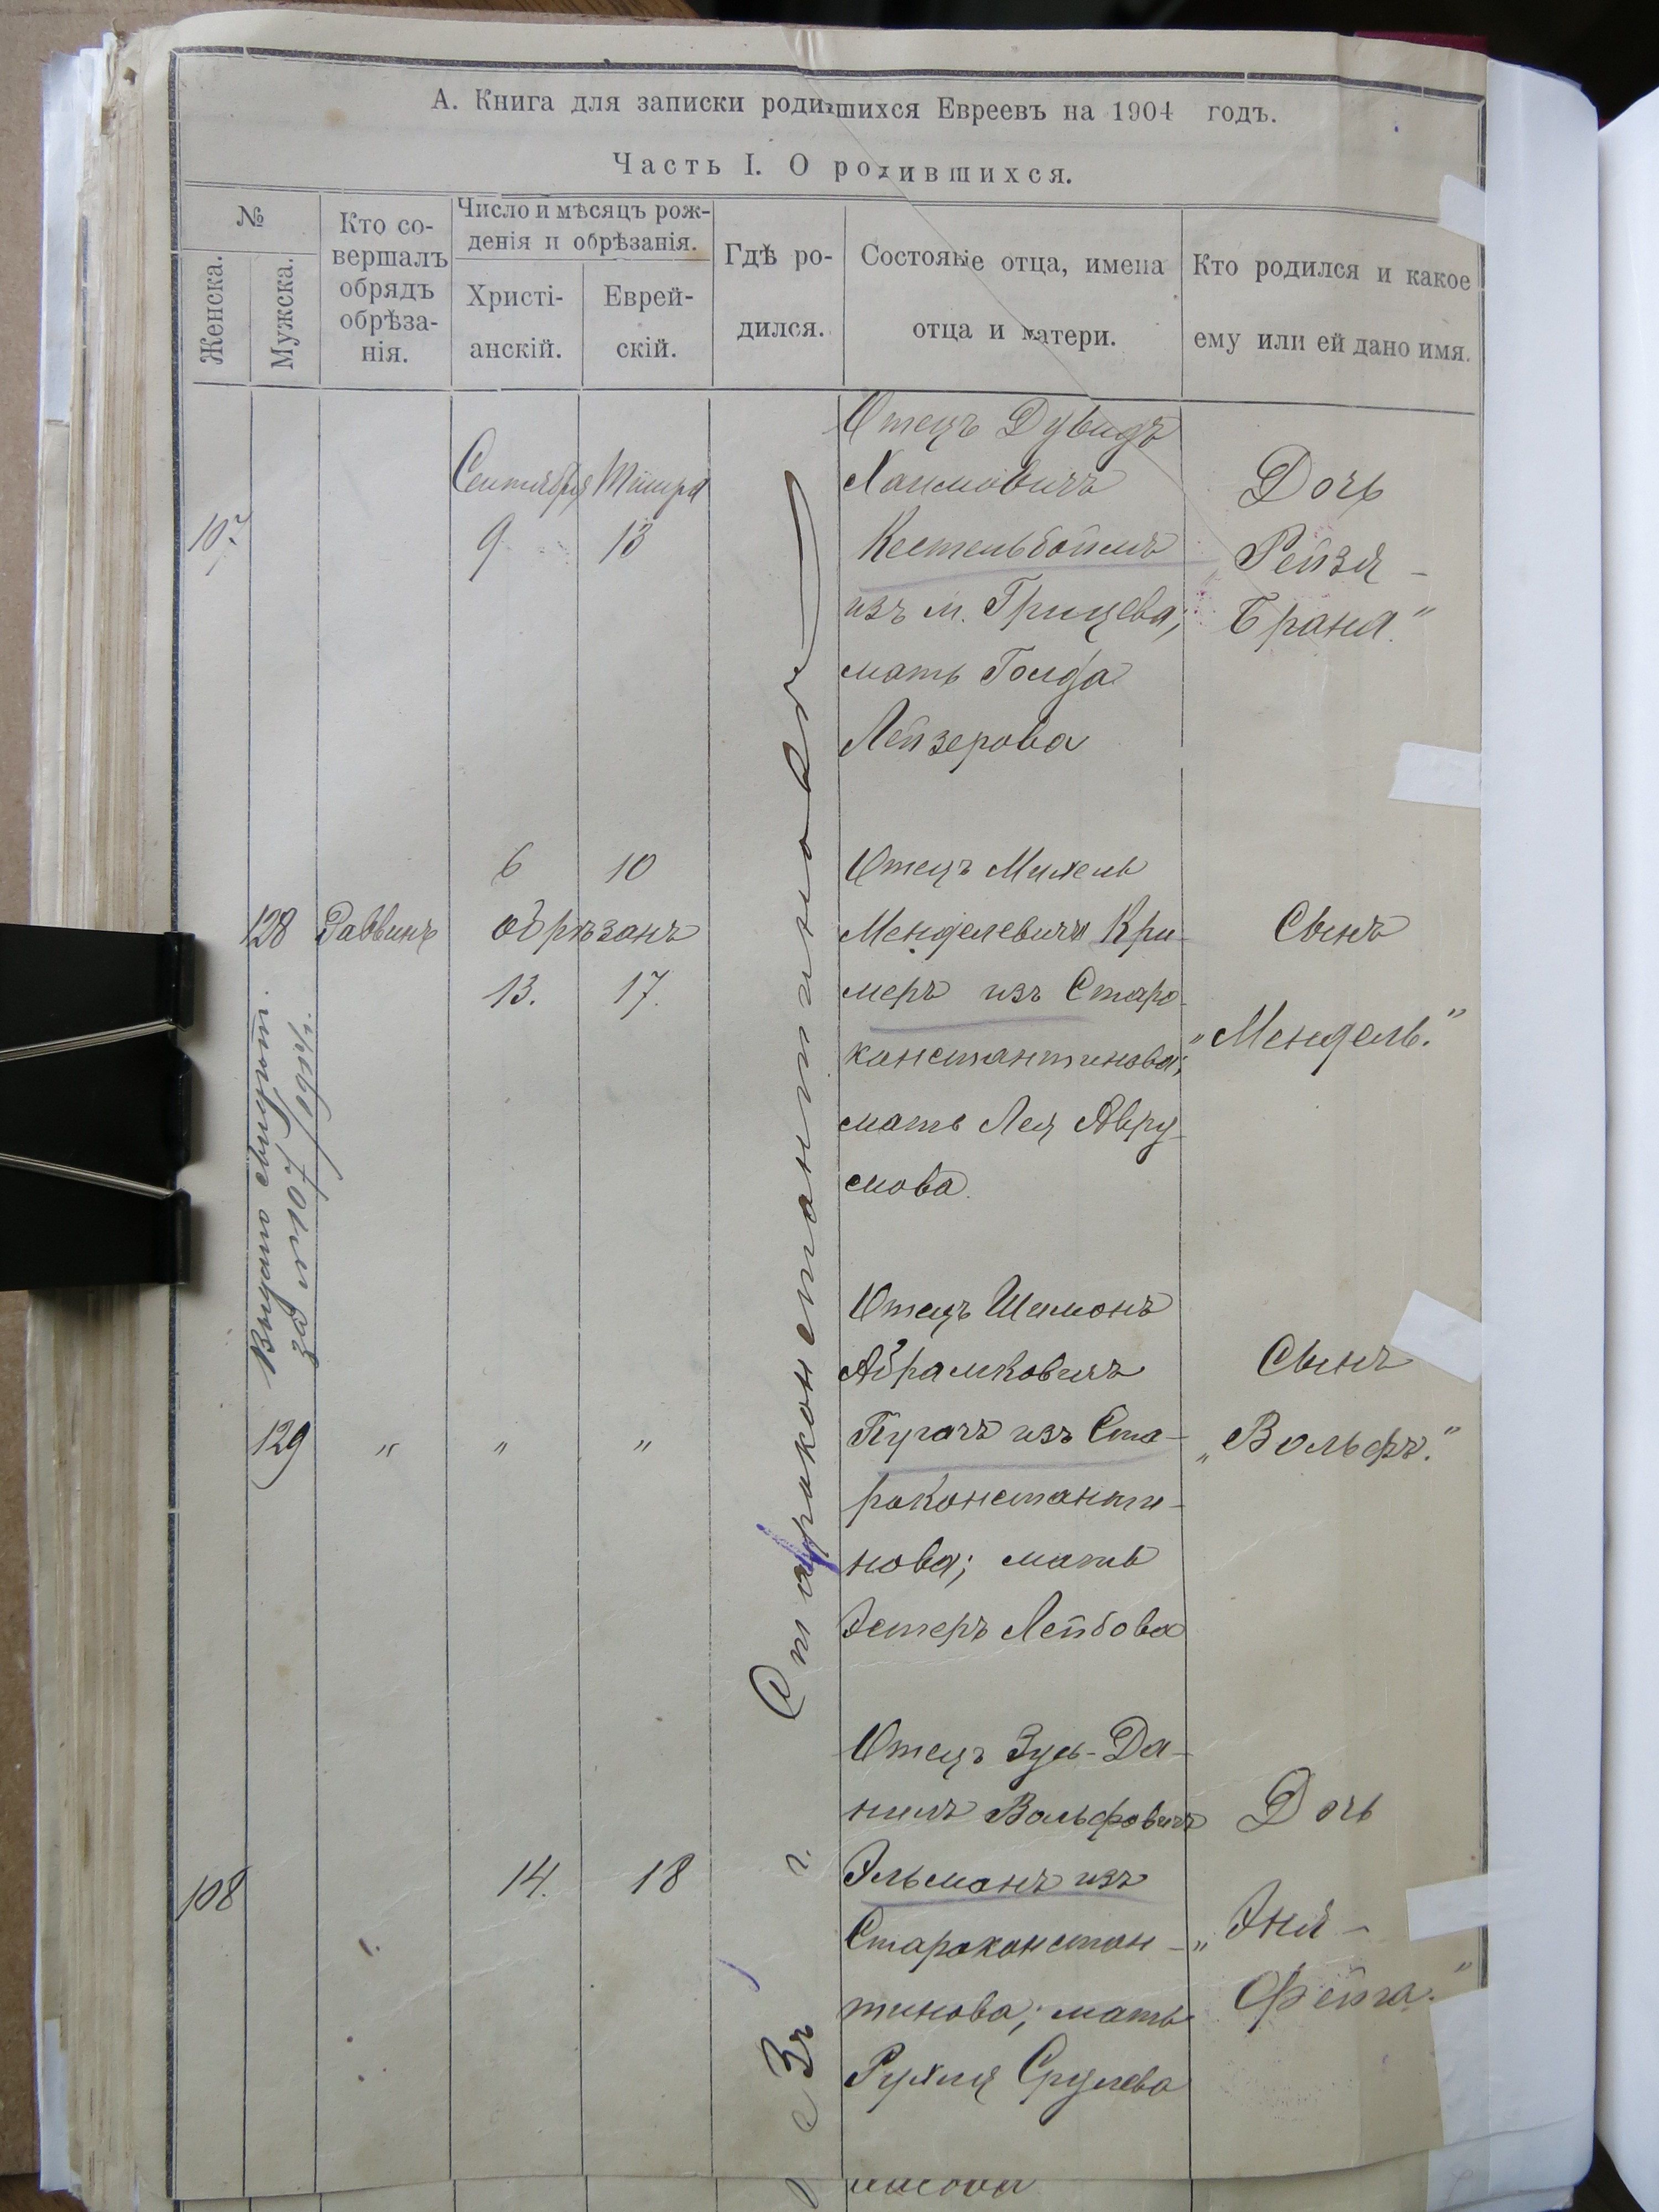 А. Книга для записки родившихся Евреевъ на 1904 годъ.
Часть I. О родившихся.
№
Женска.
Мужска.
Кто со-
вершалъ
обрядъ
обрѣза-
нія.
Число и мѣсяцъ рож-
денія и обрѣзанія.
Христі-
анскій.
Еврей-
скій.
Гдѣ ро-
дился.
Состояніе отца, имена
отца и матери.
Кто родился и какое
ему или ей дано имя.
107
Сентября Тишра
9 13
Отецъ Дувидъ
Хаимовичъ
Кестельбоймъ
изъ м. Грицева;
мать Голда
Лейзерова
Дочь
„Рейзя -
Браня."
128 Раввинъ
6 10
обрѣзанъ
13. 17.
Отецъ Михель
Менделевичъ Кри-
меръ изъ Старо-
константинова;
мать Лея Авру-
мова.
Сынъ
„Мендель."
129 " " "
Отецъ Шимонъ
Абрамковичъ
Пугачъ изъ Ста-
роконстанти-
нова; мать
Эстеръ Лейбова
Сынъ
„Вольфъ."
108
14. 18
Отецъ Зусь-Да-
нилъ Вольфовичъ
Эльманъ изъ
Староконстан-
тинова; мать
Рухля Срулева
Дочь
„Эня -
Фейга."
Въ г. Староконстантиновѣ